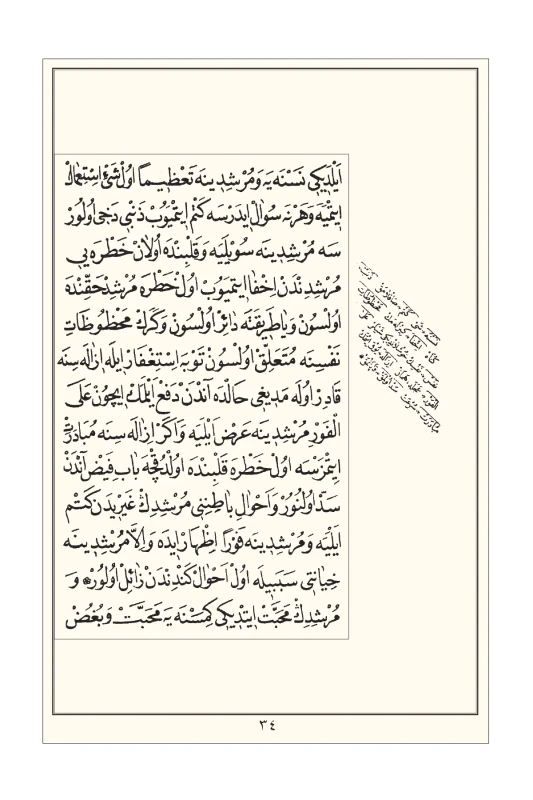 ايلديكى نسنه يه و مرشدينه تعظيماً اول شئ استعمال
ايتميه و هر نه سؤال ايدرسه كتم ايتميوب ذنبى دخى اولور
سه مرشدينه سويليه و قلبنده اولان خطره يى
مرشدندن اخفا ايتميوب اول خطره مرشد حقنده
اولسون و يا طريقته دائر اولسون و كرك محظوظات
نفسينه متعلق اولسون توبه استغفار ايله ازاله سنه
قادر اوله مديغى حالده آندن دفع ايلمك ايچون على
الفور مرشدينه عرض ايليه و اكر ازاله سنه مبادرت
ايتمزسه اول خطره قلبنده اولدقچه باب فيض آندن
سد اولنور و احوال باطننى مرشدك غيريدن كتم
ايليه و مرشدينه فوراً اظهار ايده و الا مرشدينه
خيانتى سببيله اول احوال كندندن زائل اولور و
مرشدك محبت ايتديكى كمسنه يه محبت و بغض
٣٤